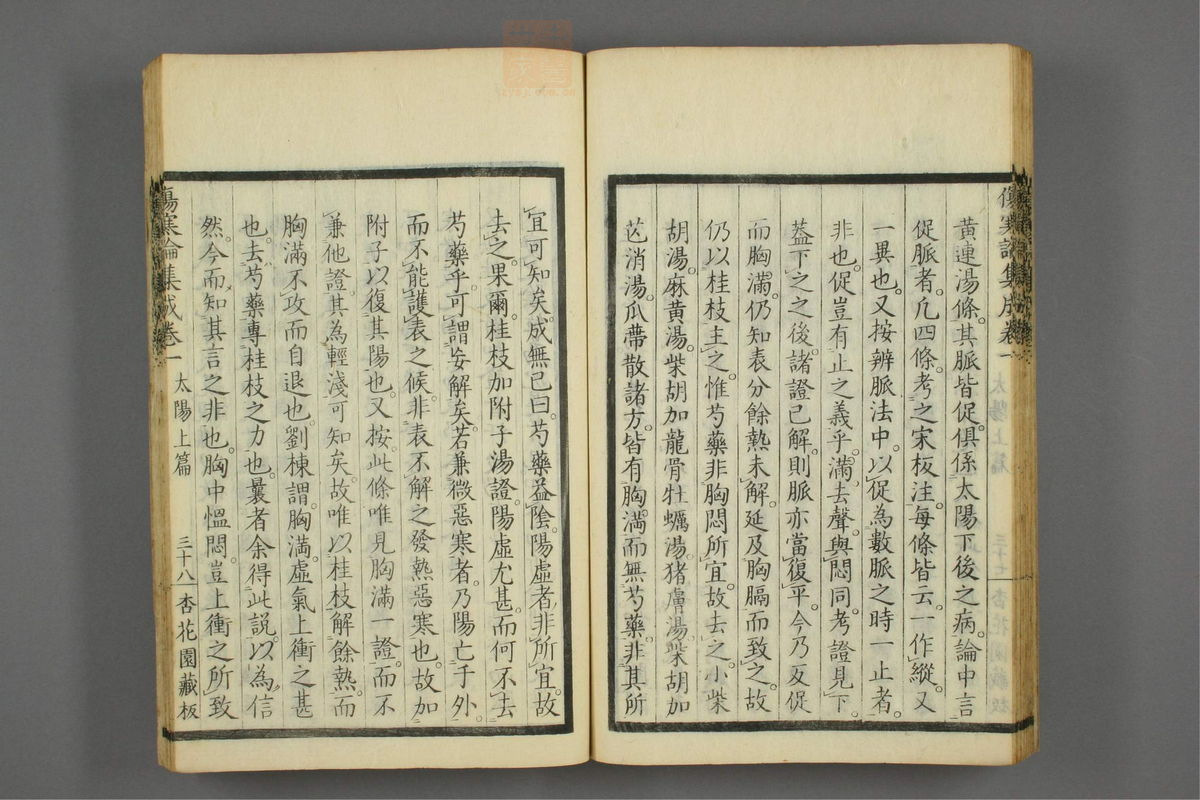 傷寒論集成卷一
黃連湯條。其脈皆促。俱係太陽下後之病。論中言
促脈者。凡四條。考之宋板注。每條皆云。一作縱。又
一異也。又按辨脈法中。以促為數脈之時一止者。
非也。促豈有止之義乎。滿去聲。與悶同。考證見下。
蓋下之之後。諸證已解。則脈亦當復平。今乃反促
而胸滿。仍知表分餘熱未解。延及胸膈而致之。故
仍以桂枝主之。惟芍藥非胸悶所宜。故去之。小柴
胡湯。麻黃湯。柴胡加龍骨牡蠣湯。猪膚湯。柴胡加
芒消湯。瓜蔕散諸方。皆有胸滿。而無芍藥。非其所
宜。可知矣。成無已曰。芍藥益陰。陽虛者。非所宜。故
去之。果爾。桂枝加附子湯證。陽虛尤甚。而何不去
芍藥乎。可謂妄解矣。若兼微惡寒者。乃陽亡于外。
而不能護表之候。非表不解之發熱惡寒也。故加
附子以復其陽也。又按。此條唯見胸滿一證。而不
兼他證。其為輕淺可知矣。故唯以桂枝解餘熱。而
胸滿不攻而自退也。劉棟謂。胸滿。虛氣上衝之甚
也。去芍藥專桂枝之力也。曩者余得此說。以為信
然。今而知其言之非也。胸中慍悶。豈上衝之所致
傷寒論集成卷一 太陽上篇 三十八 杏花園藏板